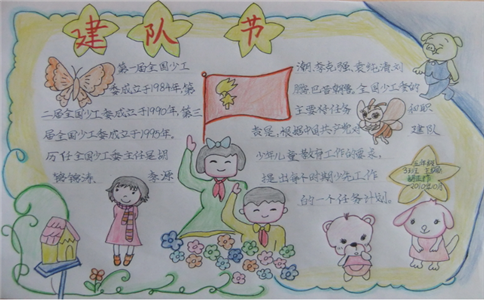 建队节
第一届全国少工
委成立于1984年,第
二届全国少工委成立于1990年,第三
届全国少工委成立于1995年。
历任全国少工委主任是胡
锦涛、李源
潮、李克强、袁纯清、刘
鹏、巴音朝鲁。全国少工委的
主要任务和职
责是,根据中国共产党对
少年儿童教育工作的要求,
提出每个时期少先工作
的一个任务计划。
建队